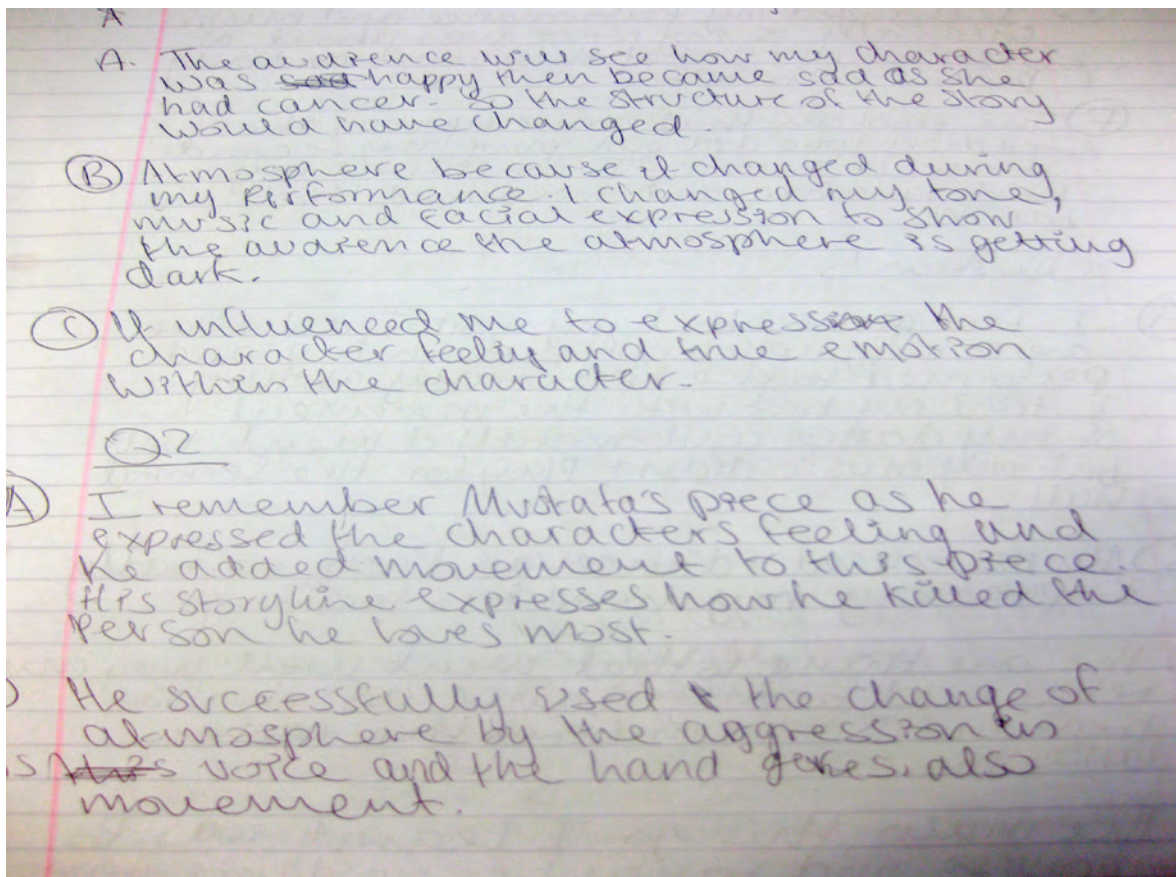 A
A. The audience will see how my character
was sad happy then became sad as she
had cancer. So the structure of the story
would have changed.
(B) Atmosphere because it changed during
my Performance. I changed my tone,
music and facial expression to show
the audience the atmosphere is getting
dark.
(C) It influenced me to express the
character feelig and true emotion
within the character.
Q2
A) I remember Mustafa's piece as he
expressed the characters feeling and
he added movement to this piece.
His storyline expresses how he killed the
Person he loves most.
) He successfully used the change of
atmosphere by the aggression in
s voice and the hand also
movement.